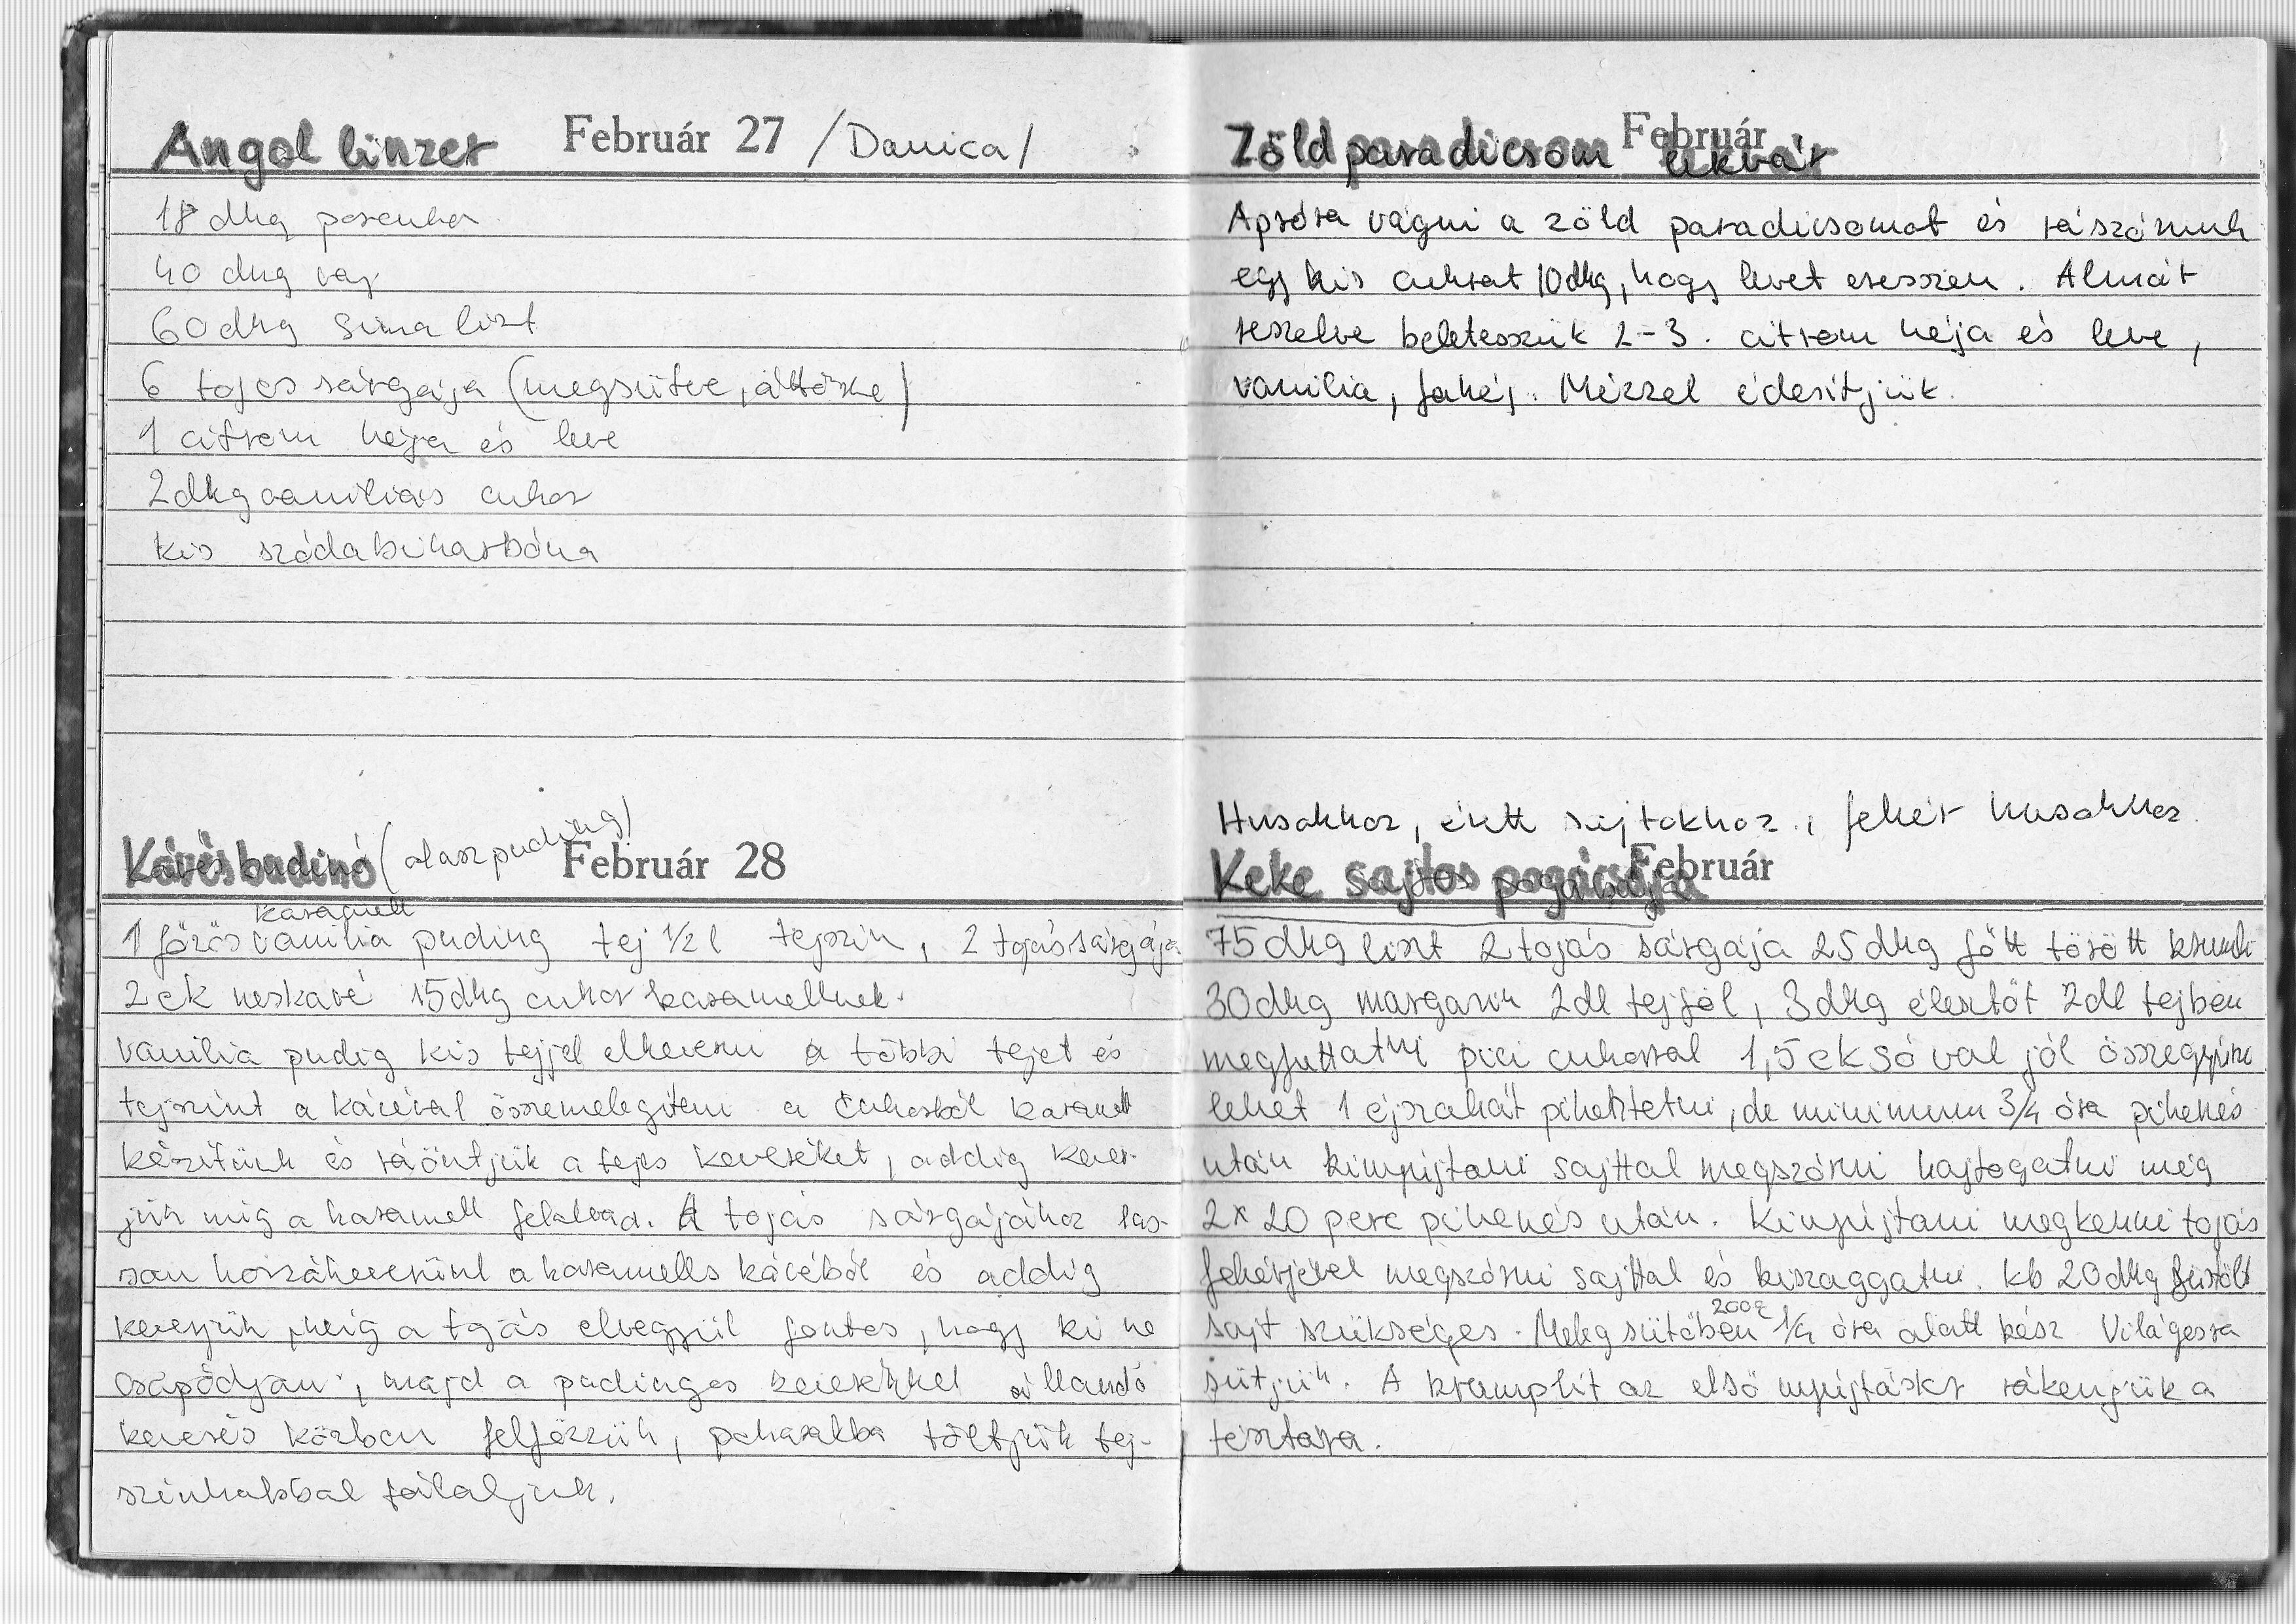 Angol linzer Február 27 /Danica/
18 dkg porcukor
40 dkg vaj
60 dkg sima liszt
6 tojás sárgája (megsütve, áttörve)
1 citrom héja és leve
2 dkg vaniliás cukor
kis szódabikarbóna
Kávés budinó (olasz puding) Február 28
karamell
1 főzős vanilia puding tej 1/2 l tejszín, 2 tojás sárgája
2 ek neskávé 15 dkg cukor karamellnek.
vanilia pudig kis tejjel elkeverni a többi tejet és
tejszínt a kávéval összemelegíteni a cukorból karamell
készítünk és ráöntjük a tejes keveréket, addig kever-
jük míg a karamell felolvad. A tojás sárgájához las-
san hozzákeverünk a karamells kávéból és addig
keverjük, míg a tojás elvegyül fontos, hogy ki ne
csapódjan, majd a pudingos keverékkel állandó
keverés közben felfőzzük, poharakba töltjük tej-
színhabbal tálaljuk.
Zöld paradicsom lekvár Február
Apróra vágni a zöld paradicsomot és rászórunk
egy kis cukrot 10 dkg, hogy levet eresszen. Almát
reszelve beletesszük 2-3. citrom héja és leve,
vanilia, fahéj. Mézzel édesítjük.
Husokhoz, érett sajtokhoz, fehér husokhoz.
Keke sajtos pogácsája Február
75 dkg liszt 2 tojás sárgája 25 dkg főtt törött krumli
30 dkg margarin 2 dl tejföl, 3 dkg élesztőt 2 dl tejben
megfuttatni pici cukorral 1,5 ek sóval jól összegyúrni
lehet 1 éjszakát pihentetni, de minimum 3/4 óra pihenés
után kinyújtani sajttal megszórni hajtogatni még
2 x 20 perc pihenés után. Kinyújtani megkenni tojás
fehérjével megszórni sajttal és kiszaggatni. kb 20 dkg füstölt
200°
sajt szükséges. Meleg sütőben 1/4 óra alatt kész Világosra
sütjük. A krumplit az első nyújtáskor rákenjük a
tésztára.